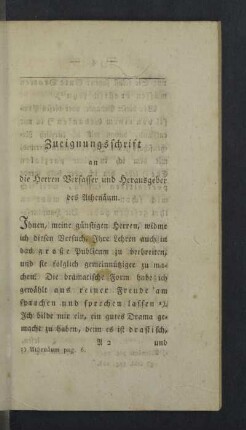 Zueignungsschrift
an
die Herren Verfasser und Herausgeber
des Athenäum.
Ihnen, meine günstigen Herren, widme
ich diesen Versuch, Ihre Lehren auch in
das große Publicum zu verbreiten,
und sie folglich gemeinnütziger zu ma-
chen. Die dramatische Form habe ich
gewählt aus reiner Freude am
sprechen und sprechen lassen 1).
Ich bilde mir ein, ein gutes Drama ge-
macht zu haben, denn es ist drastisch,
A 2 und
1) Athenäum pag. 6.